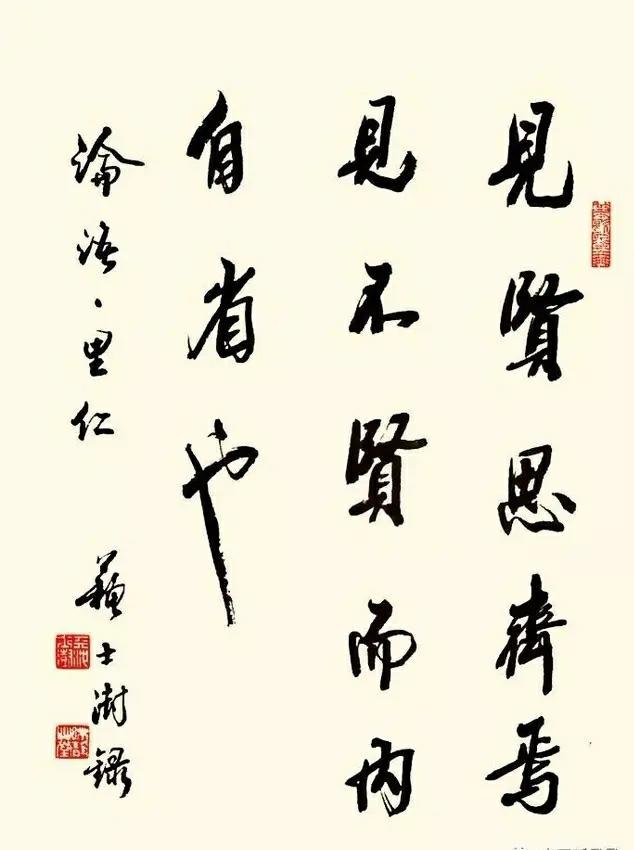 見賢思齊焉
見不賢而內
自省也
論語·里仁
蘇士澍錄